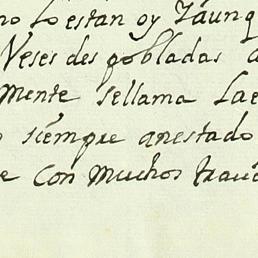 no lo estan oy Yaunq
Veses des pobladas a
Mente sellama Lae
siempre anestado
e con muchos trav